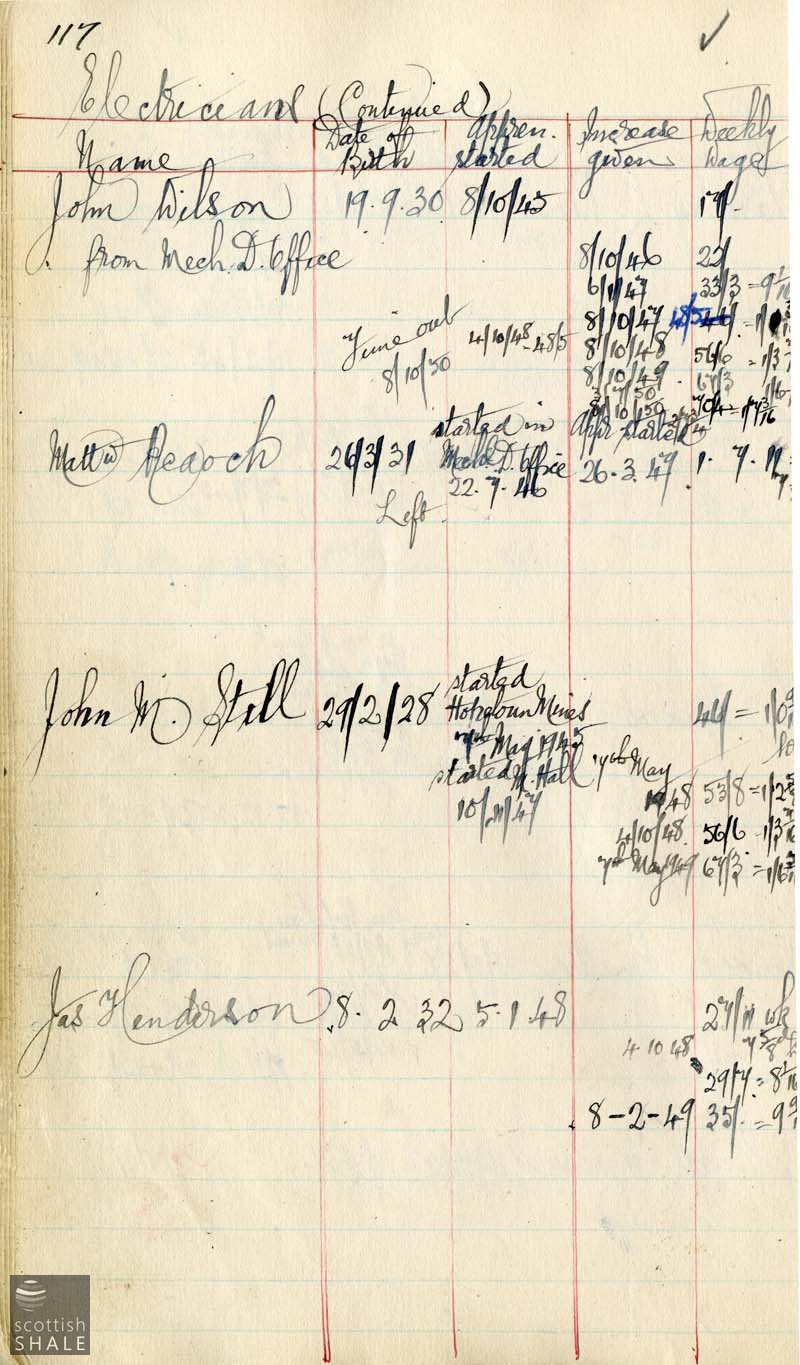 117
Electricians (Continued)
Name Date of Birth Appren. started Increase given Weekly Wages
John Wilson 19.9.30 8/10/45 17/-
from Mech. D. Office
8/10/46 22/
6/1/47 33/3 =
8/10/47 48/5
Time out 4/10/48 - 48/5 8/10/48 56/6 = 1/3
8/10/50 8/10/49 67/3
8/10/50 70/4 = 1/7 3/16
Matt w Reaoch 26/3/31 started in Mech. D. Office 22.7.46 Appr started 26.3.47 1. 7.
Left
John M. Still 29/2/28 started Hopetoun Mines 7th May 1945 44/ =
started M. Hall 10/11/47 7th May 1948 53/8 = 1/2
4/10/48 56/6 1/3
7th May 1949 67/3 = 1/6
Jas Henderson 8.2.32 5.1.48 27/11 wk
4.10.48
29/7 = 8
8-2-49 35/. = 9
scottish
SHALE